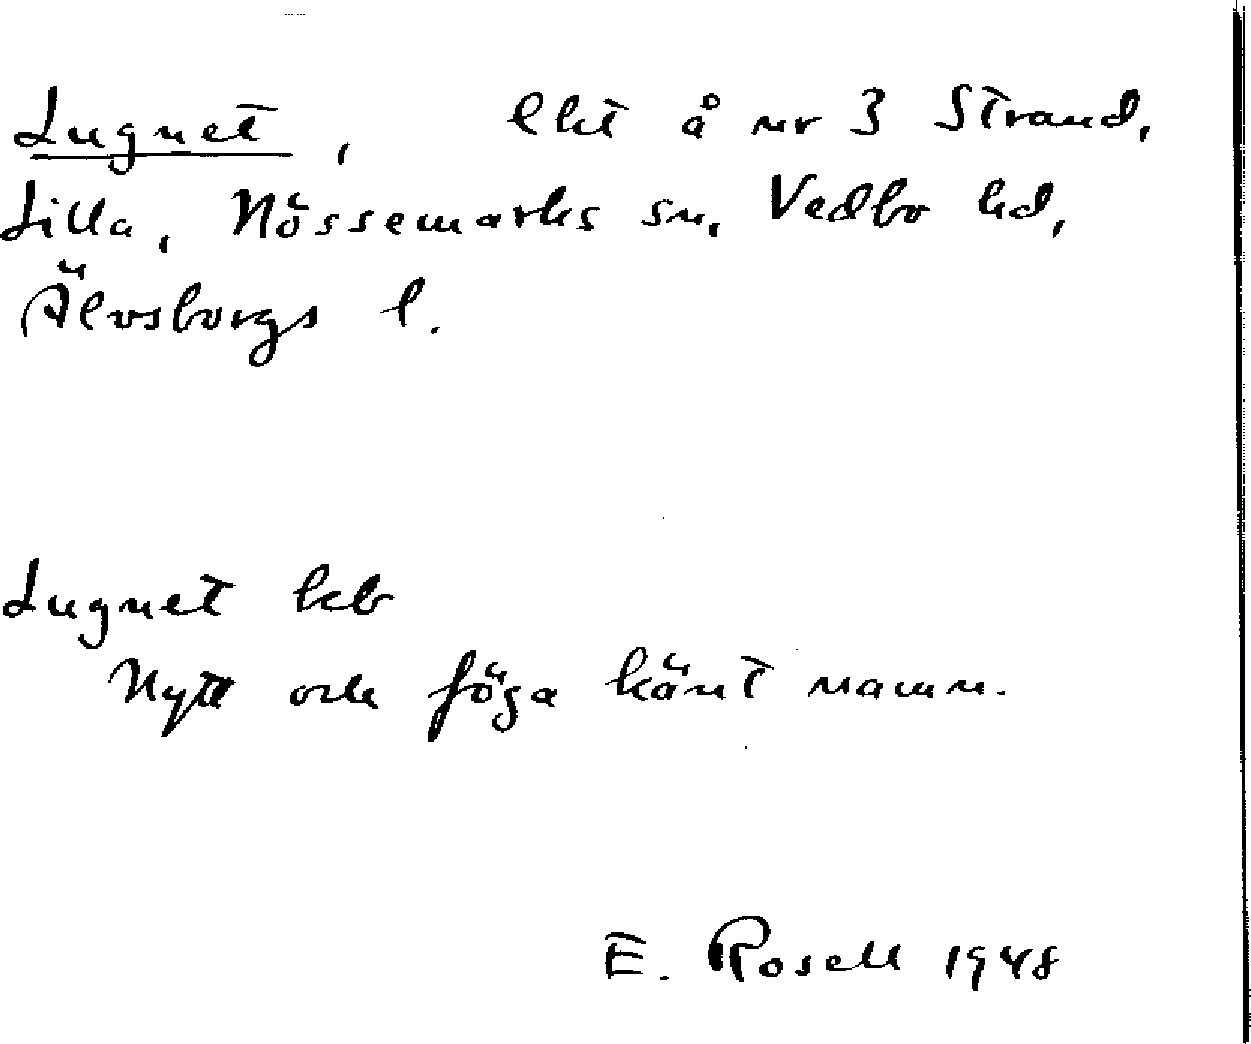 Lugnet, lht å nr 3 Strand,
Lilla, Nössemarks sn, Vedbo hd,
Älvsborgs l.
Lugnet keb
Nytt och föga känt namn.
E. Rosell 1948